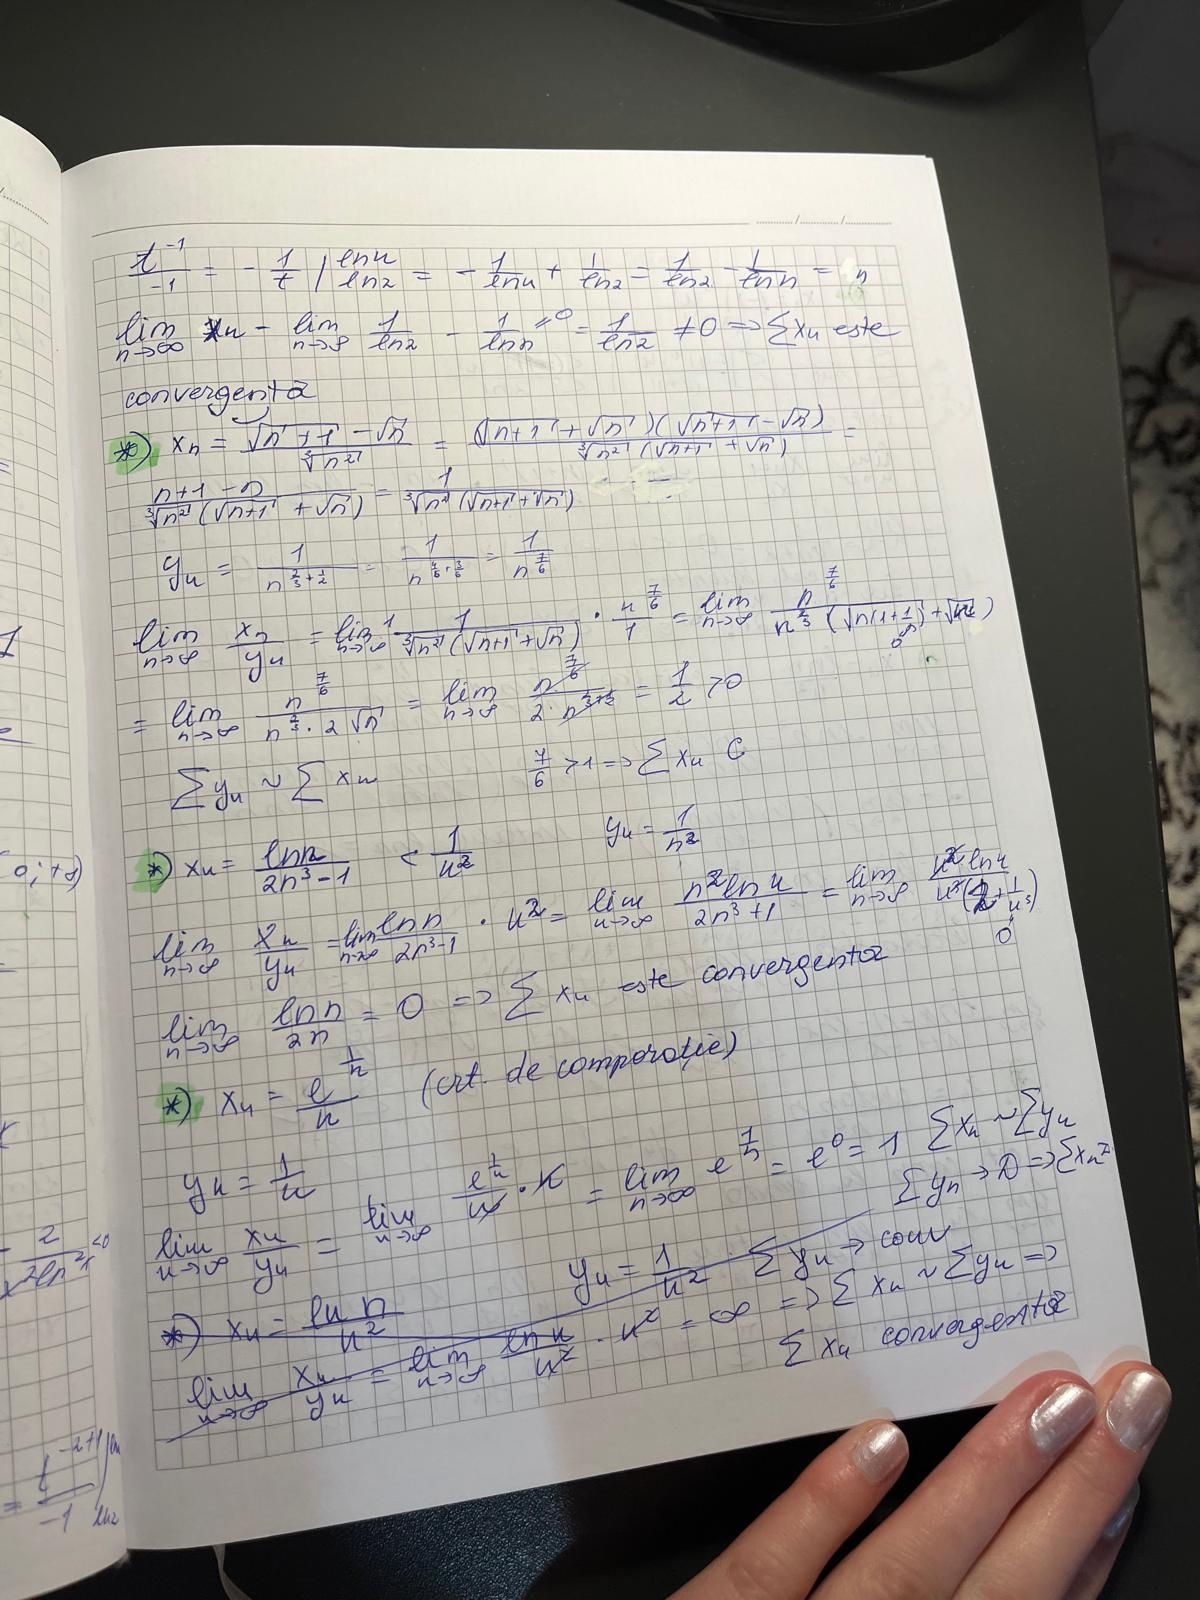 t^-1/-1 = - 1/t | ln n / ln 2 = - 1/ln n + 1/ln 2 = 1/ln 2 - 1/ln n = n
lim n→∞ xn - lim n→∞ 1/ln 2 - 1/ln n →0 = 1/ln 2 ≠ 0 => Σ xn este
convergentă
*) xn = (√n+1 - √n)/∛n² = (√n+1 + √n)(√n+1 - √n)/∛n² (√n+1 + √n) =
(n+1-n)/∛n² (√n+1 + √n) = 1/∛n² (√n+1 + √n)
yn = 1/n^(2/3+1/2) = 1/n^(4/6+3/6) = 1/n^(7/6)
lim n→∞ xn/yn = lim n→∞ 1/∛n² (√n+1 + √n) · n^(7/6)/1 = lim n→∞ n^(7/6)/n^(2/3) (√n(1+1/n) + √n)
0
= lim n→∞ n^(7/6)/n^(2/3) · 2√n = lim n→∞ n^(7/6)/2 · n^(2/3+1/2) = 1/2 > 0
Σ yn ~ Σ xn 7/6 > 1 => Σ xn C
*) xn = ln n/2n³-1 < 1/n² yn = 1/n²
lim n→∞ xn/yn = lim n→∞ ln n/2n³-1 · n² = lim n→∞ n² ln n/2n³+1 = lim n→∞ n² ln n/n³(2+1/n³)
0
lim n→∞ ln n/2n = 0 => Σ xn este convergentă
*) xn = e^(1/n)/n (crt. de comparație)
yn = 1/n
lim n→∞ xn/yn = lim n→∞ e^(1/n)/n · n = lim n→∞ e^(1/n) = e^0 = 1 Σ xn ~ Σ yn
Σ yn → D => Σ xn
*) xn = ln n/n² yn = 1/n² Σ yn → conv
lim n→∞ xn/yn = lim n→∞ ln n/n² · n² = ∞ => Σ xn ~ Σ yn =>
Σ xn convergentă